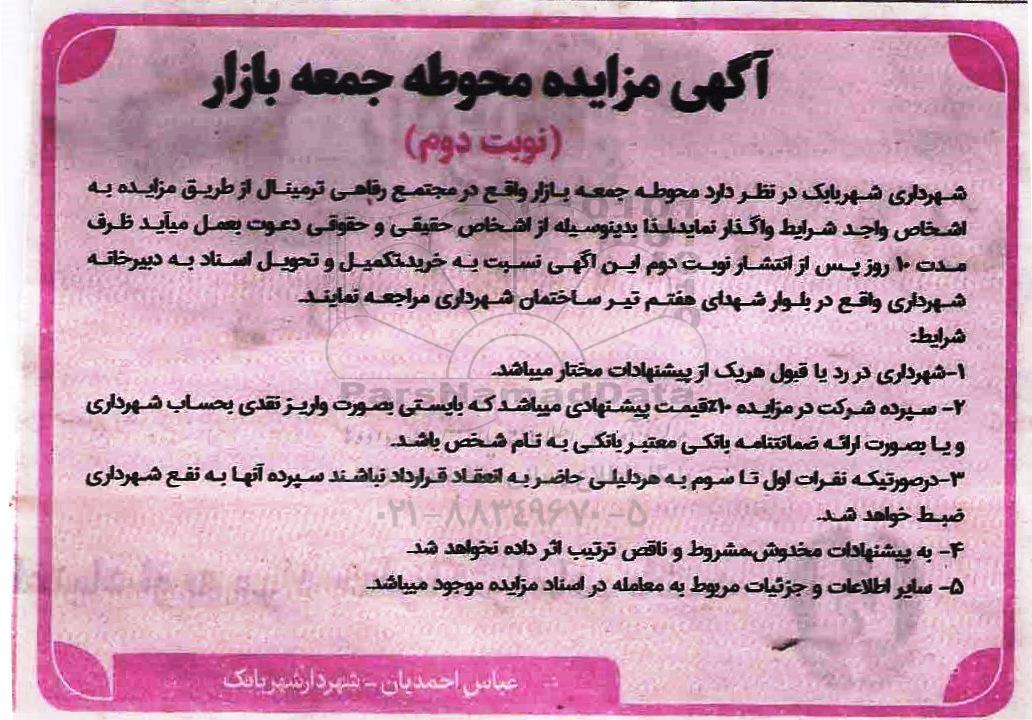 آگهی مزایده محوطه جمعه بازار
(نوبت دوم)
شهرداری شهربابک در نظر دارد محوطه جمعه بازار واقع در مجتمع رفاهی ترمینال از طریق مزایده به
اشخاص واجد شرایط واگذار نماید.لذا بدینوسیله از اشخاص حقیقی و حقوقی دعوت بعمل میآید ظرف
مدت ۱۰ روز پس از انتشار نوبت دوم این آگهی نسبت به خرید،تکمیل و تحویل اسناد به دبیرخانه
شهرداری واقع در بلوار شهدای هفتم تیر ساختمان شهرداری مراجعه نمایند.
شرایط:
۱-شهرداری در رد یا قبول هریک از پیشنهادات مختار میباشد.
ParsNamadData
۲- سپرده شرکت در مزایده ۱۰٪قیمت پیشنهادی میباشد که بایستی بصورت واریز نقدی بحساب شهرداری
و یا بصورت ارائه ضمانتنامه بانکی معتبر بانکی به نام شخص باشد.
۳-درصورتیکه نفرات اول تا سوم به هردلیلی حاضر به انعقاد قرارداد نباشند سپرده آنها به نفع شهرداری
ضبط خواهد شد.
۰۲۱-۸۸۳۴۹۶۷۰-۵
۴- به پیشنهادات مخدوش،مشروط و ناقص ترتیب اثر داده نخواهد شد.
۵- سایر اطلاعات و جزئیات مربوط به معامله در اسناد مزایده موجود میباشد.
عباس احمدیان - شهردار شهربابک